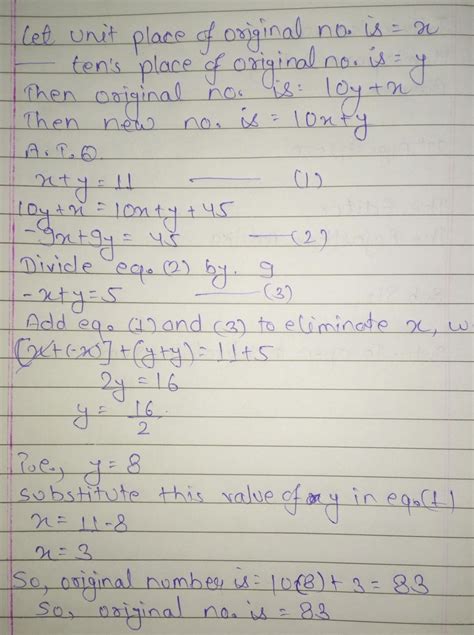 Let unit place of original no. is = x
—— ten's place of original no. is = y
Then original no. is = 10y+x
Then new no. is = 10x+y
A.T.Q.
x+y = 11 —— (1)
10y+x = 10x+y+45
-9x+9y = 45 —— (2)
Divide eq. (2) by. 9
-x+y=5 —— (3)
Add eq. (1) and (3) to eliminate x, w
[x+(-x)]+(y+y) = 11+5
2y = 16
y = 16/2
i.e., y = 8
substitute this value of y in eq. (1)
x = 11-8
x = 3
So, original number is = 10(8)+3 = 83
So, original no. is = 83